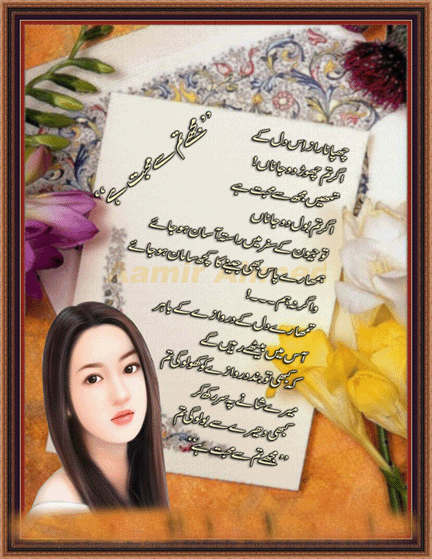 "مجھے تم سے محبت ہے"
چھپانا راز اِس دل کے
اگر تم چھوڑ دو جاناں!
تمھیں مجھ سے محبت ہے
اگر تم بول دو جاناں
تو جیون کے سفر میں راستہ آسان ہو جائے
ہمارے پاس بھی جینے کا کچھ سامان ہو جائے
Aamir Ahmad
وگرنہ ہم ۔۔۔۔!
تمھارے دل کے دروازے کے باہر
آس میں بیٹھے رہیں گے
کہ کبھی تو بند دروازے کو کھولو گی تم
میرے شانے پہ سر رکھ کر
کبھی دھیرے سے بولو گی تم
"مجھے تم سے محبت ہے"